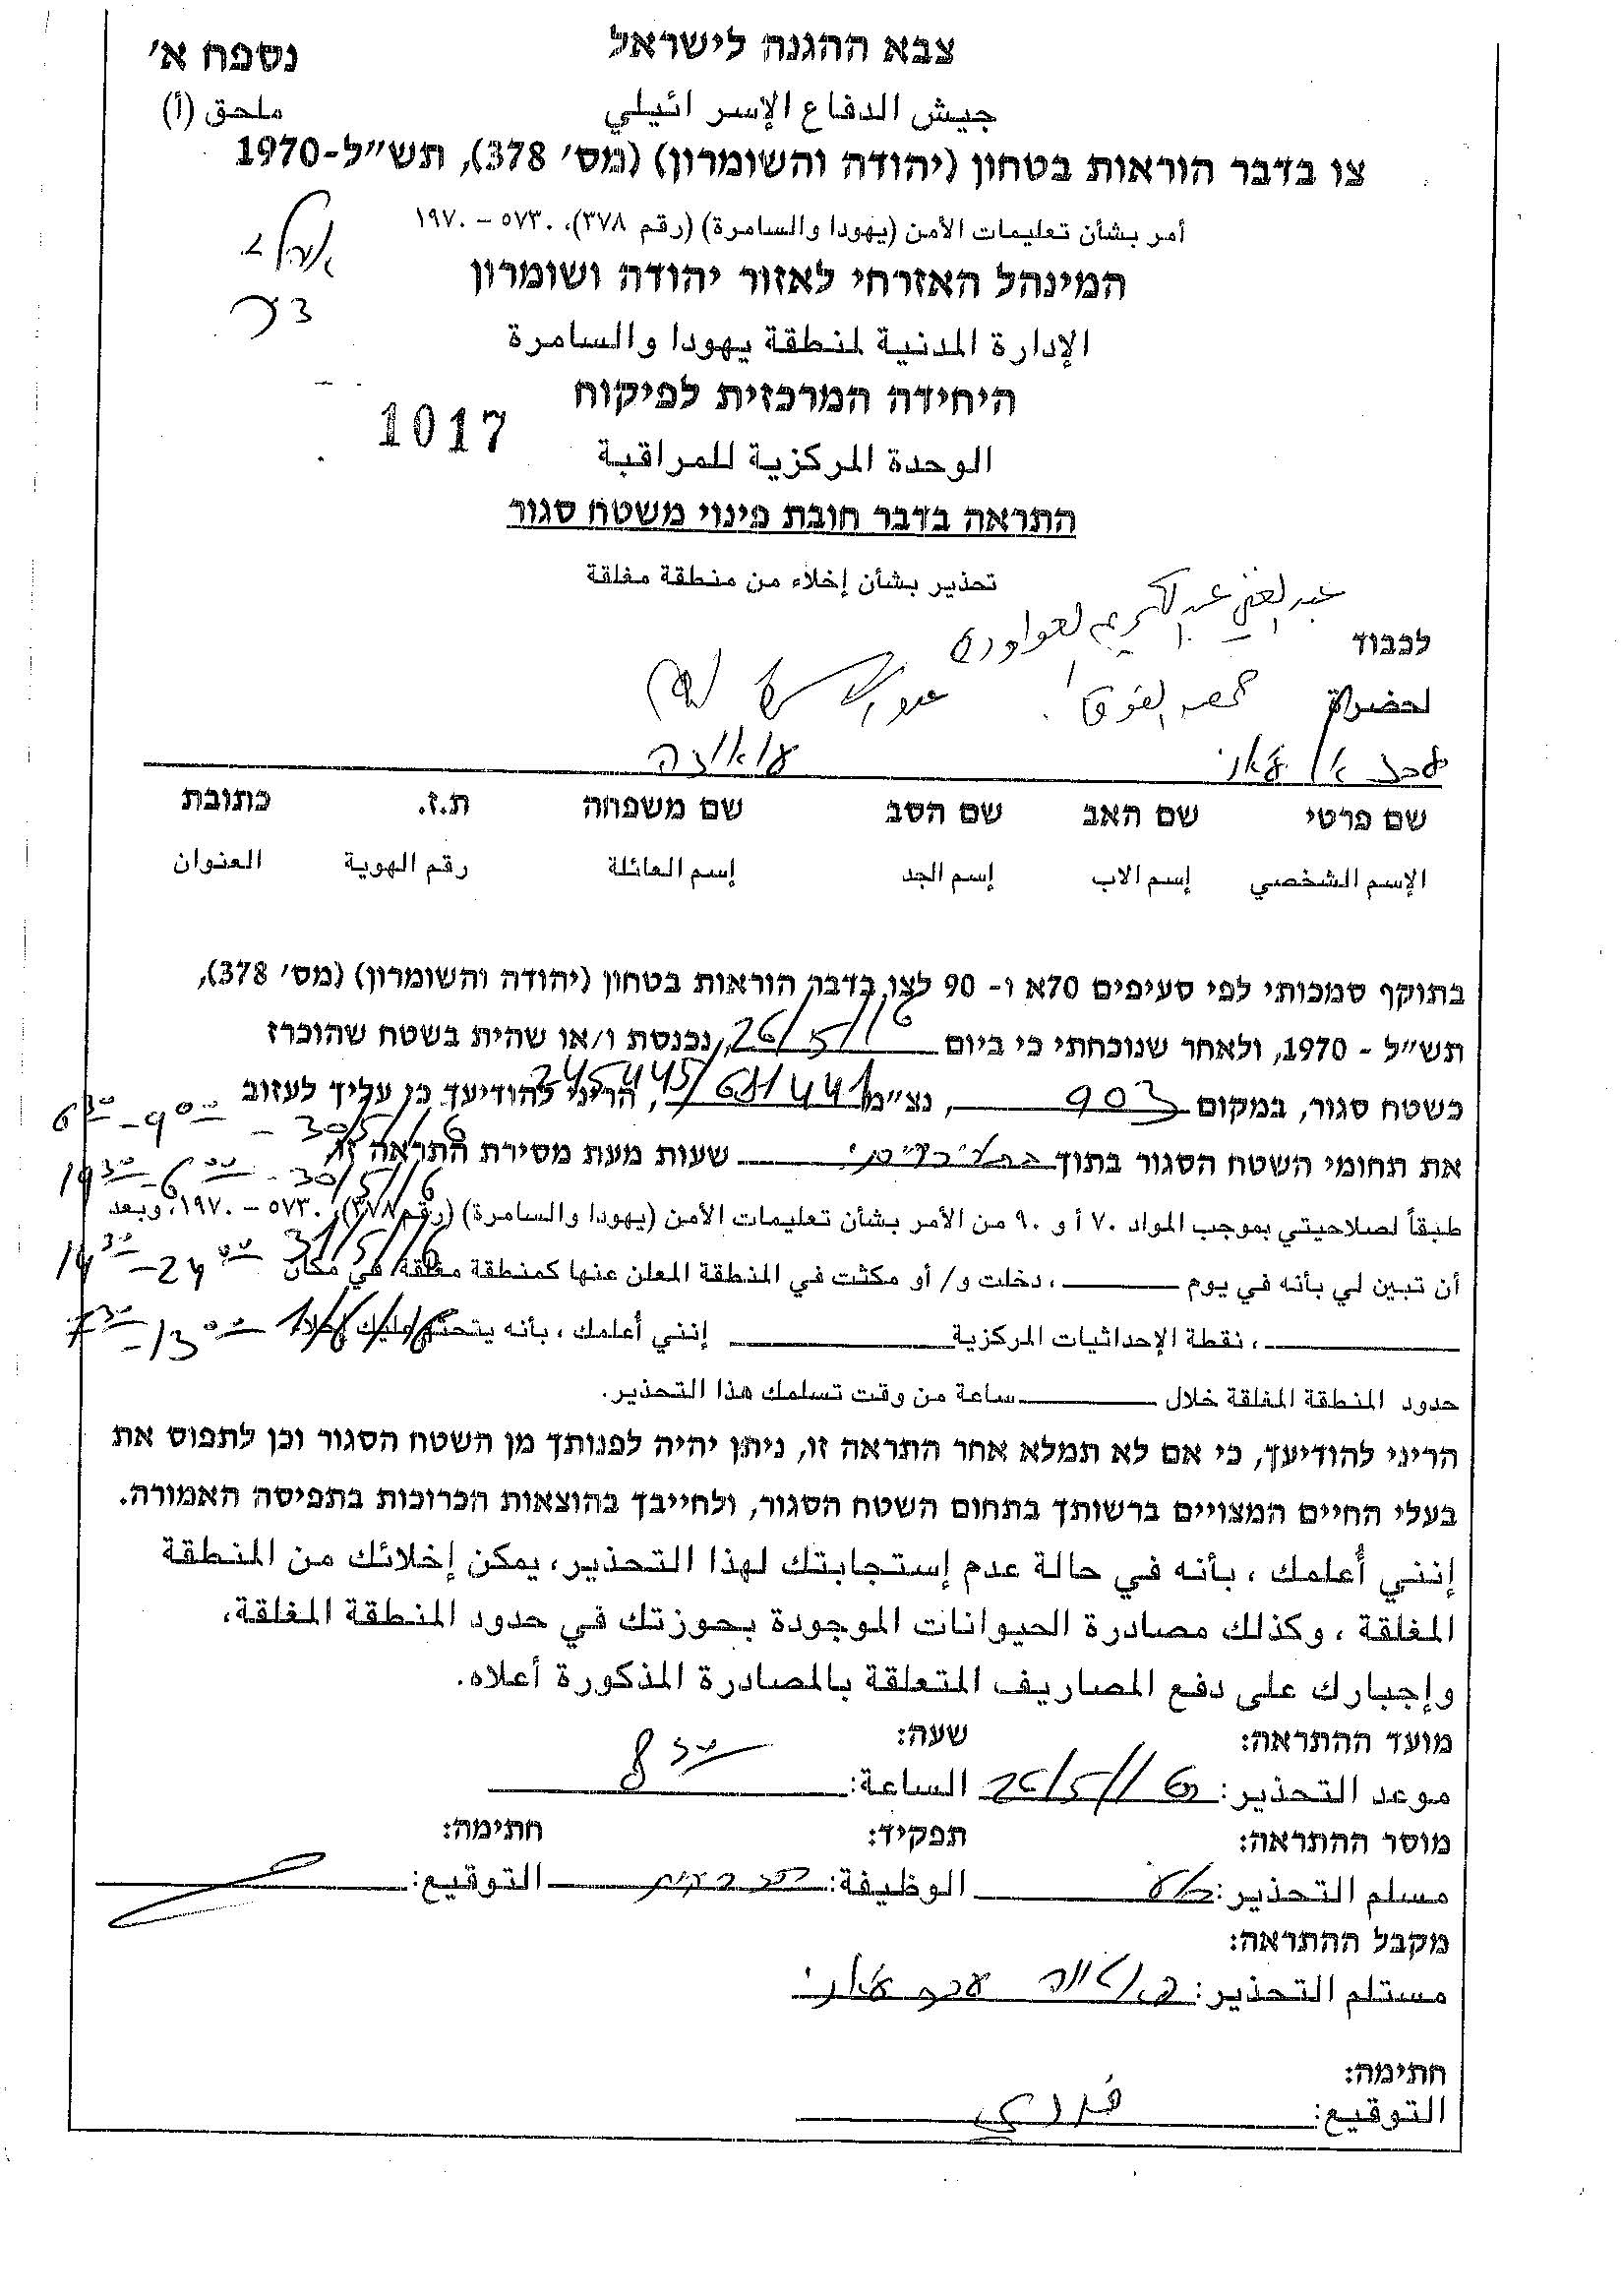 צבא ההגנה לישראל
נספח א׳
جيش الدفاع الإسرائيلي
ملحق (أ)
צו בדבר הוראות בטחון (יהודה והשומרון) (מס׳ 378), תש״ל-1970
أمر بشأن تعليمات الأمن (يهودا والسامرة) (رقم ٣٧٨)، ٥٧٣٠ – ١٩٧٠
המינהל האזרחי לאזור יהודה ושומרון
الإدارة المدنية لمنطقة يهودا والسامرة
היחידה המרכזית לפיקוח
1017
الوحدة المركزية للمراقبة
התראה בדבר חובת פינוי משטח סגור
تحذير بشأن إخلاء من منطقة مغلقة
عبد الغني عبد الكريم العواودة
לכבוד
لحضرة
עואודה
שם פרטי שם האב שם הסב שם משפחה ת.ז. כתובת
الإسم الشخصي إسم الاب إسم الجد إسم العائلة رقم الهوية العنوان
בתוקף סמכותי לפי סעיפים 70א ו- 90 לצו בדבר הוראות בטחון (יהודה והשומרון) (מס׳ 378),
תש״ל - 1970, ולאחר שנוכחתי כי ביום 26/5/16, נכנסת ו/או שהית בשטח שהוכרז
כשטח סגור, במקום 903, נצ״מ 245445/681441, הריני להודיעך כן עליך לעזוב
6 30 - 9 00 - 30/5/16
את תחומי השטח הסגור בתוך שעות מעת מסירת התראה זו.
19 30 - 6 00 - 30/5/16
طبقاً لصلاحيتي بموجب المواد ٧٠ أ و ٩٠ من الأمر بشأن تعليمات الأمن (يهودا والسامرة) (رقم ٣٧٨)، ٥٧٣٠ – ١٩٧٠، وبعد
14 30 - 24 00 31/5/16
أن تبين لي بأنه في يوم ، دخلت و/ أو مكثت في المنطقة المعلن عنها كمنطقة مغلقة، في مكان
7 30 - 13 00 - 1/6/16
، نقطة الإحداثيات المركزية إنني أعلمك ، بأنه يتحتم عليك إخلاء
حدود المنطقة المغلقة خلال ساعة من وقت تسلمك هذا التحذير.
הריני להודיעך, כי אם לא תמלא אחר התראה זו, ניתן יהיה לפנותך מן השטח הסגור וכן לתפוס את
בעלי החיים המצויים ברשותך בתחום השטח הסגור, ולחייבך בהוצאות הכרוכות בתפיסה האמורה.
إنني أُعلمك ، بأنه في حالة عدم إستجابتك لهذا التحذير، يمكن إخلائك من المنطقة
المغلقة ، وكذلك مصادرة الحيوانات الموجودة بحوزتك في حدود المنطقة المغلقة،
وإجبارك على دفع المصاريف المتعلقة بالمصادرة المذكورة أعلاه.
מועד ההתראה: שעה:
موعد التحذير: 26/5/16 الساعة: 8 30
מוסר ההתראה: תפקיד: חתימה:
مسلم التحذير: الوظيفة: التوقيع:
מקבל ההתראה:
مستلم التحذير:
חתימה:
التوقيع: